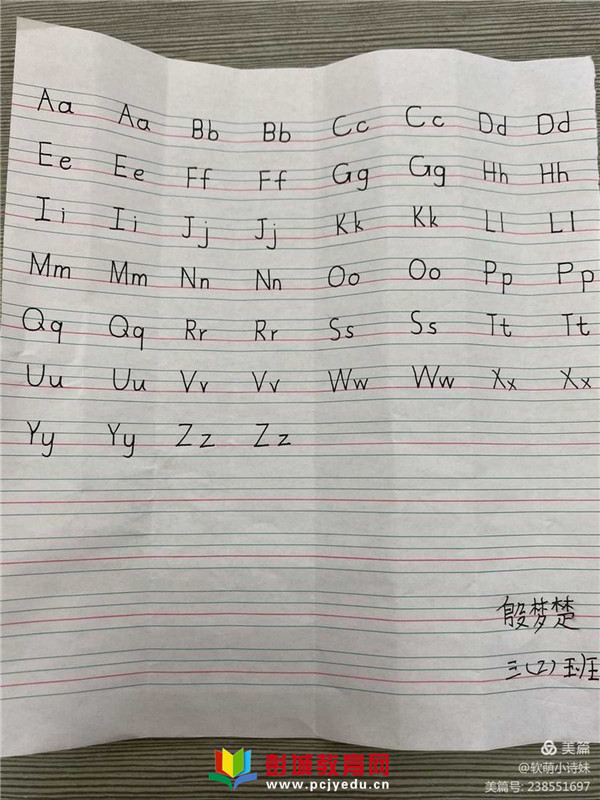 Aa Aa Bb Bb Cc Cc Dd Dd
Ee Ee Ff Ff Gg Gg Hh Hh
Ii Ii Jj Jj Kk Kk Ll Ll
Mm Mm Nn Nn Oo Oo Pp Pp
Qq Qq Rr Rr Ss Ss Tt Tt
Uu Uu Vv Vv Ww Ww Xx Xx
Yy Yy Zz Zz
殷梦楚
三(2)班
美篇
@软萌小诗妹
美篇号: 238551697
彭城教育网
www.pcjyedu.cn